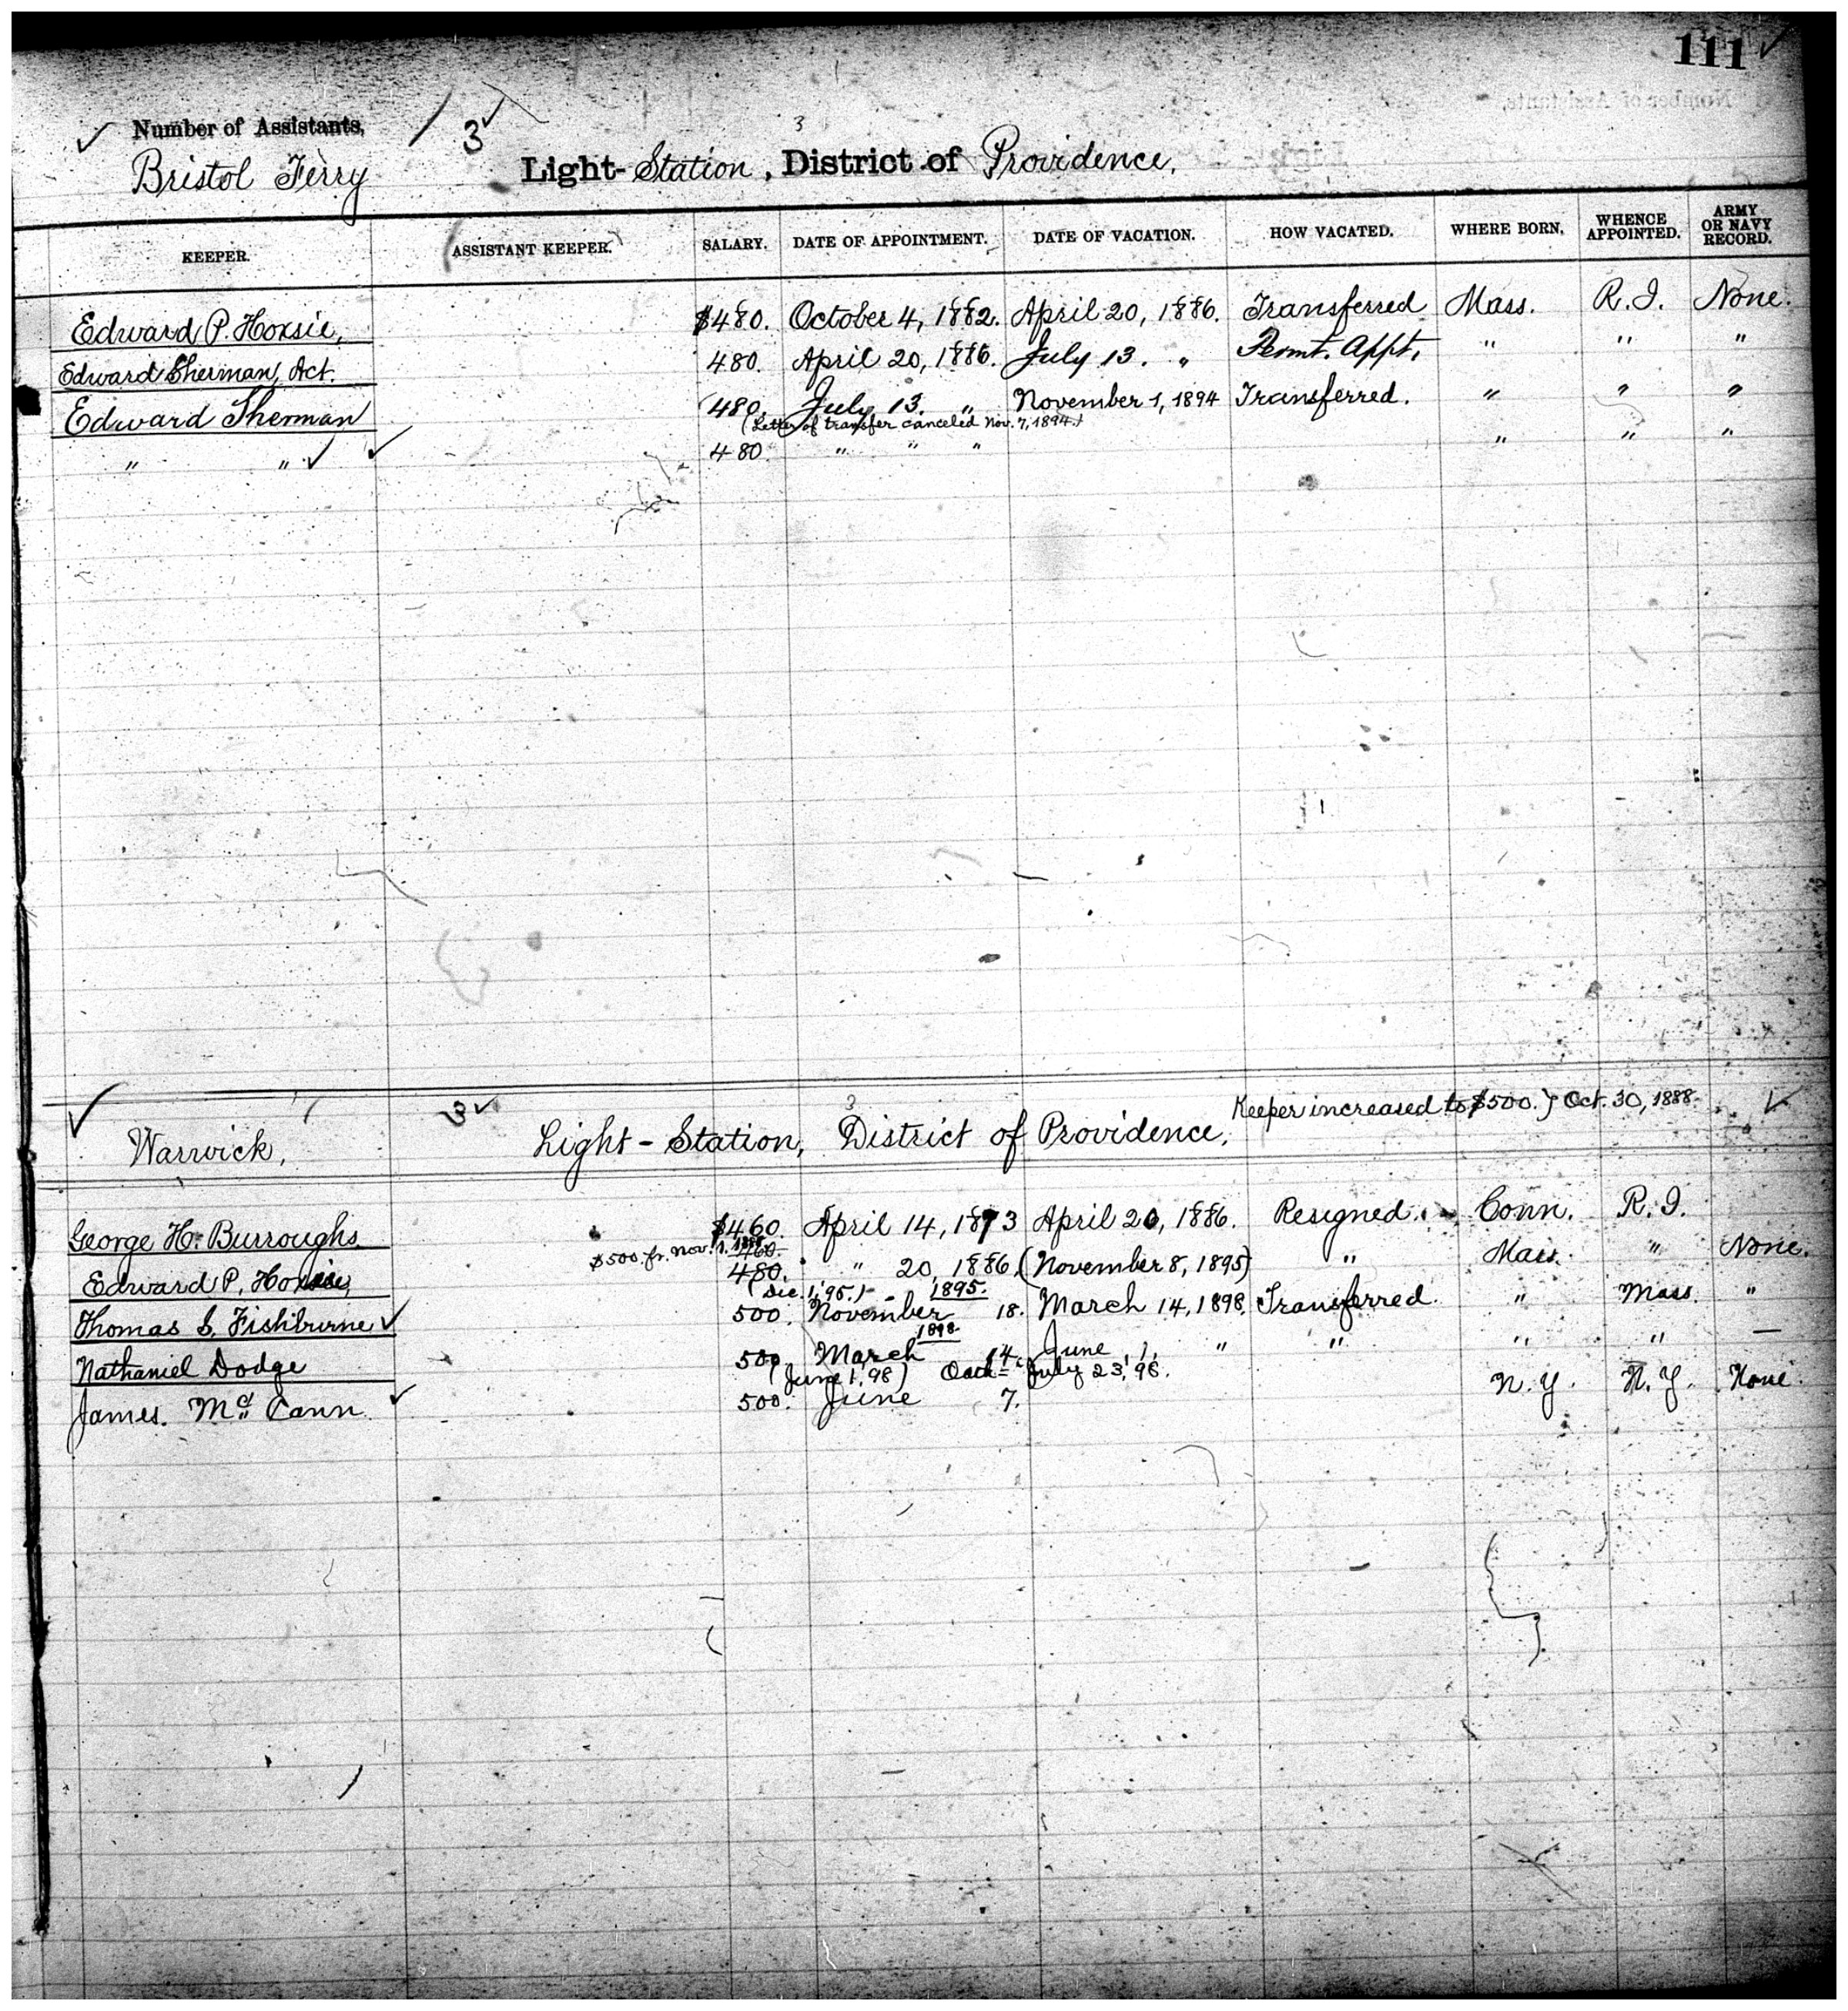 111
Number of Assistants,
3
3
Bristol Ferry Light-Station, District of Providence.
KEEPER. ASSISTANT KEEPER. SALARY. DATE OF APPOINTMENT. DATE OF VACATION. HOW VACATED. WHERE BORN. WHENCE APPOINTED. ARMY OR NAVY RECORD.
Edward P. Hoxsie, $480. October 4, 1882. April 20, 1886. Transferred Mass. R.I. None.
Edward Sherman, Act. 480. April 20, 1886. July 13. " Permt. Appt. " " "
Edward Sherman 480. July 13. " November 1, 1894 Transferred. " " "
(Letter of transfer canceled Nov. 7, 1894.)
" " 480. " " " " " "
3 3 Keeper increased to $500. } Oct. 30, 1888.
Warwick, Light-Station, District of Providence.
George H. Burroughs. $460. April 14, 1873 April 20, 1886. Resigned. Conn. R.I.
$500. fr. Nov. 1, 1888. 460.
Edward P. Hoxsie, 480. " 20, 1886. (November 8, 1895) " Mass. " None.
(Dec. 1, '95.) 1895.
Thomas S. Fishburne 500. November 18. March 14, 1898. Transferred. " Mass. "
1898.
Nathaniel Dodge 500 March 14 June 1, " " " " —
(June 1, 98) Oath July 23, '98.
James Mc Cann 500. June 7. N.Y. N.Y. None.